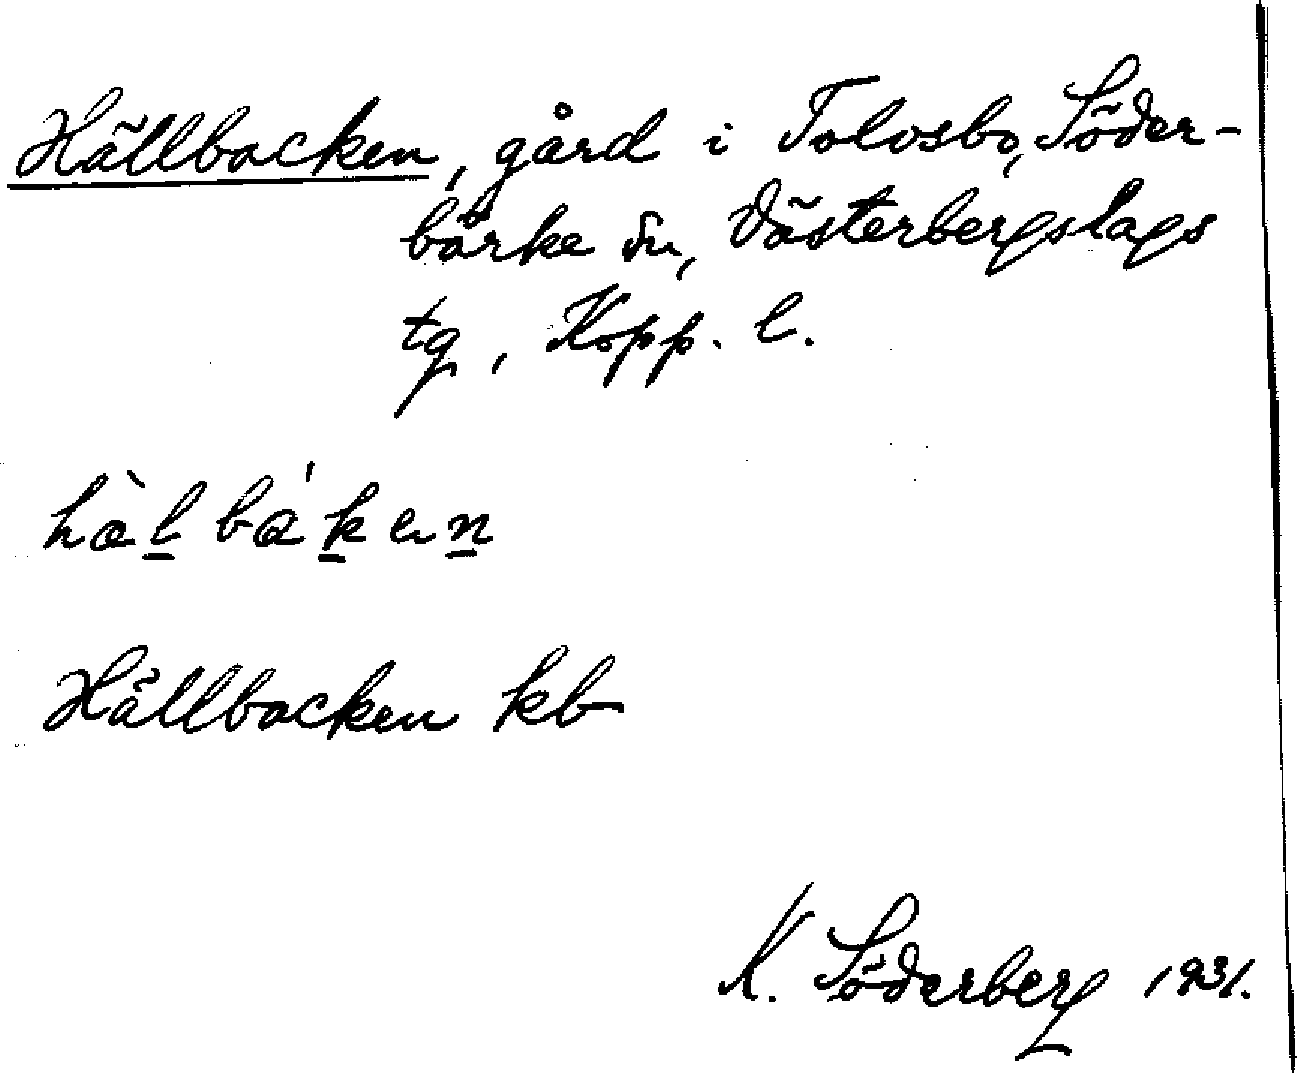 Hällbacken, gård i Tolvsbo, Söder-
bärke sn, Västerbergslags
tg, Kopp. l.
hàl báken
Hällbacken kb
K. Söderberg 1931.